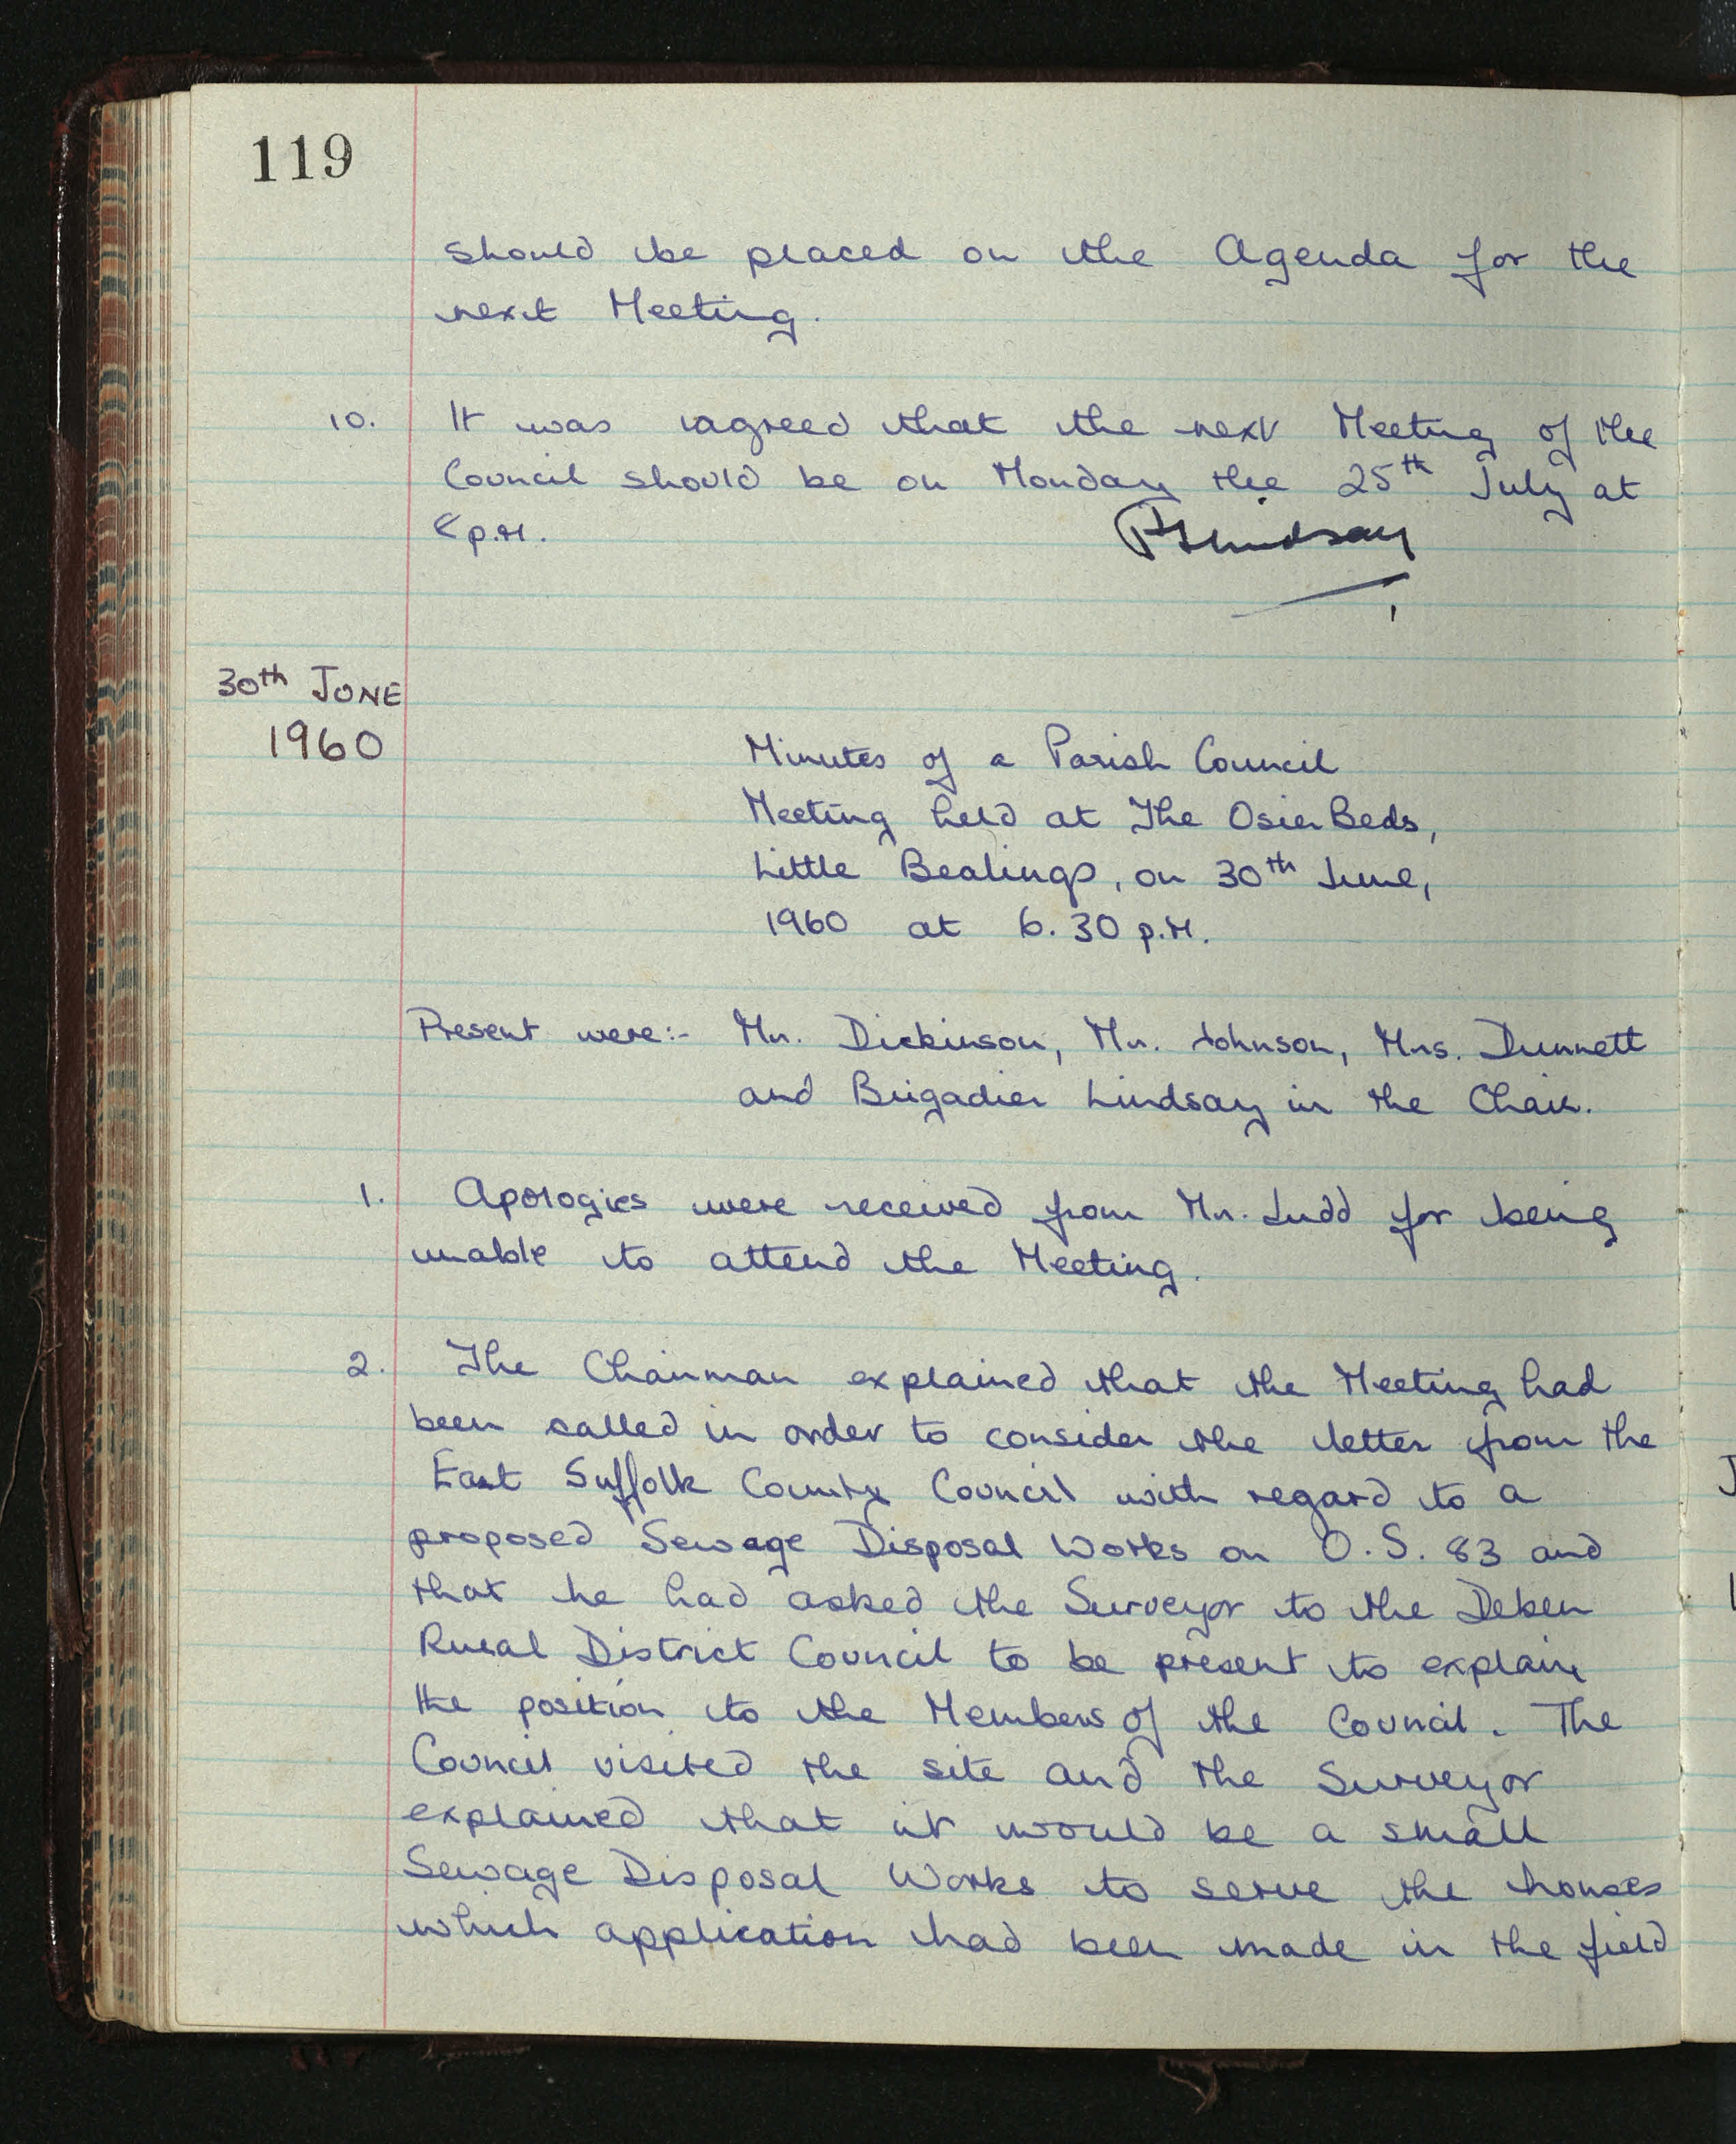 119
should be placed on the Agenda for the
next Meeting.
10. It was agreed that the next Meeting of the
Council should be on Monday the 25th July at
8 p.m.
Lindsay
30th JUNE
1960
Minutes of a Parish Council
Meeting held at The Osier Beds,
Little Bealings, on 30th June,
1960 at 6.30 p.m.
Present were:- Mr. Dickinson, Mr. Johnson, Mrs. Dunnett
and Brigadier Lindsay in the Chair.
1. Apologies were received from Mr. Ludd for being
unable to attend the Meeting.
2. The Chairman explained that the Meeting had
been called in order to consider the letter from the
East Suffolk County Council with regard to a
proposed Sewage Disposal Works on O.S. 83 and
that he had asked the Surveyor to the Deben
Rural District Council to be present to explain
the position to the Members of the Council. The
Council visited the site and the Surveyor
explained that it would be a small
Sewage Disposal Works to serve the houses
which application had been made in the field